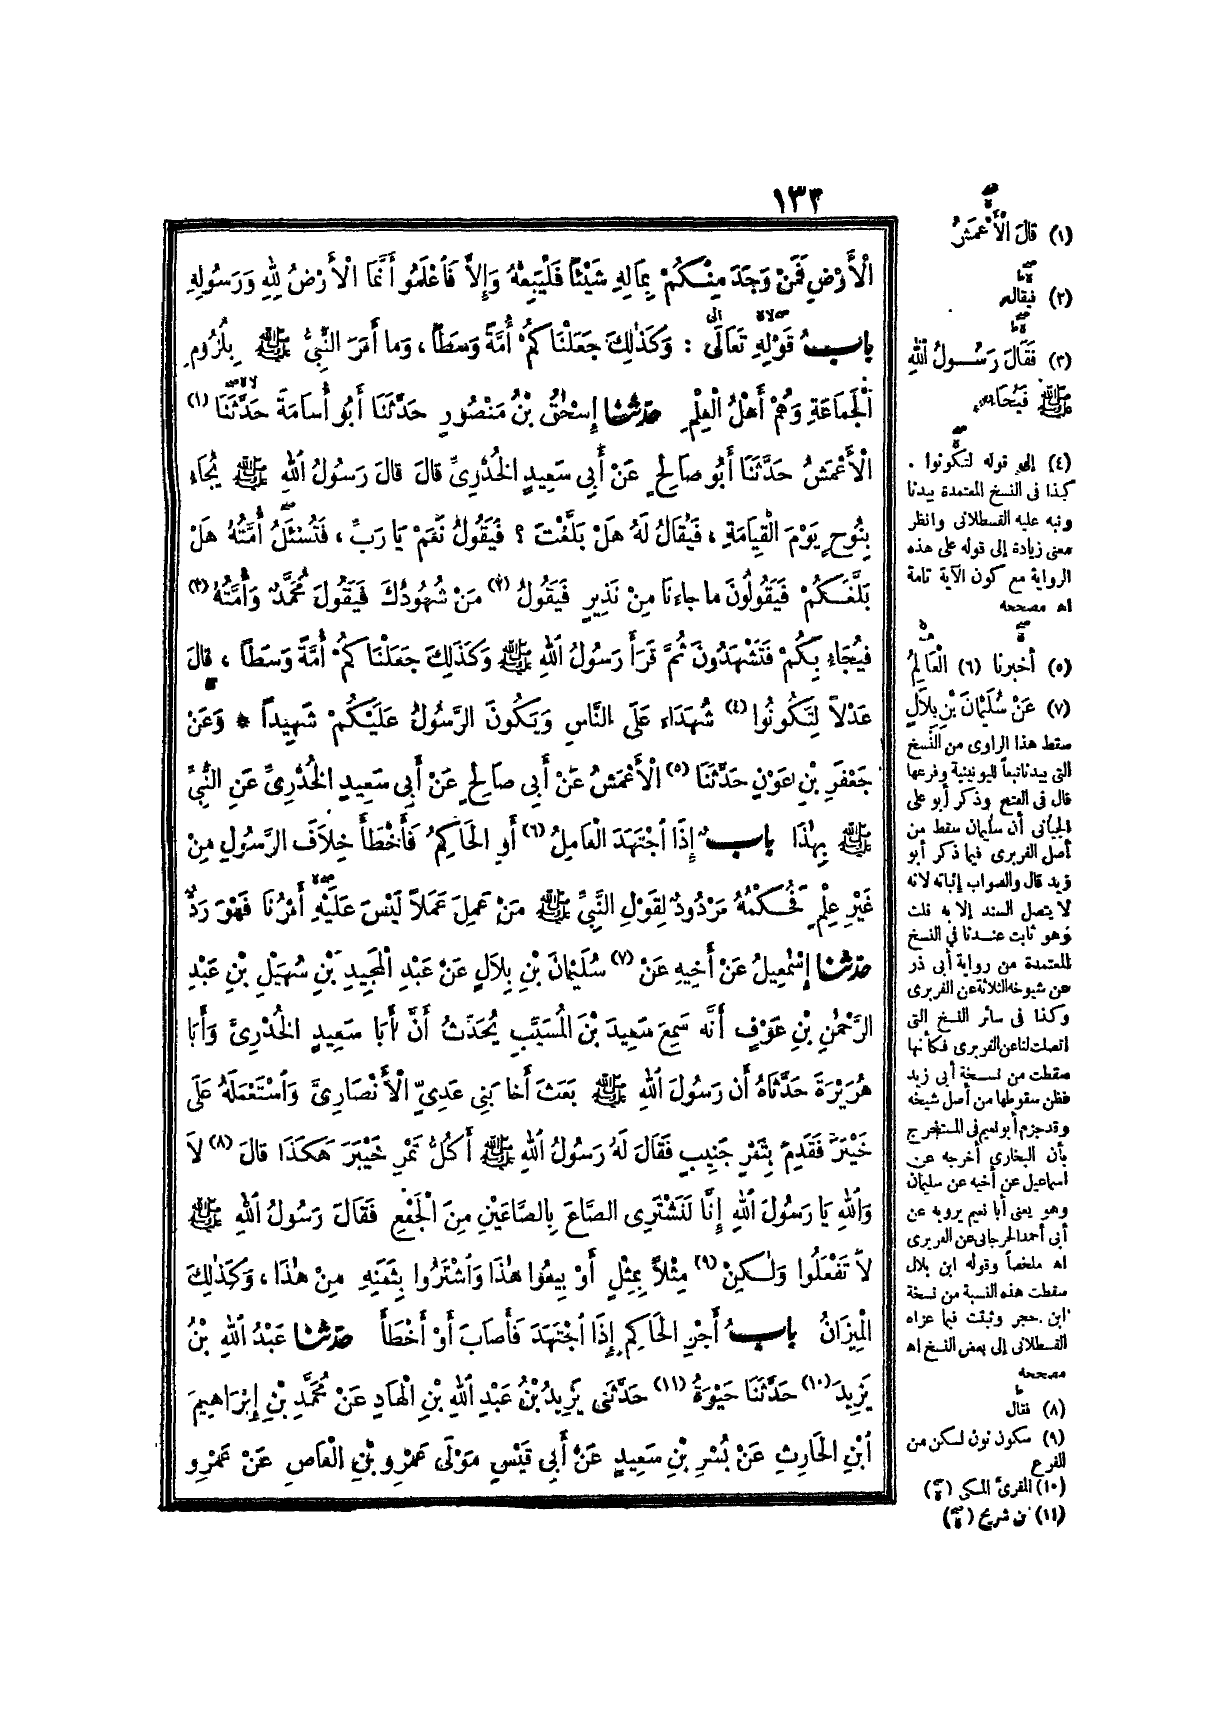 ١٣٢
الْأَرْضِ فَمَنْ وَجَدَ مِنْكُمْ بِمَالِهِ شَيْئًا فَلْيَبِعْهُ وَإِلَّا فَاعْلَمُوا أَنَّمَا الْأَرْضُ لِلّٰهِ وَرَسُولِهِ
بَابُ قَوْلِهِ تَعَالَى : وَكَذٰلِكَ جَعَلْنَاكُمْ أُمَّةً وَسَطًا ، وَمَا أَمَرَ النَّبِيُّ ﷺ بِلُزُومِ
الْجَمَاعَةِ وَهُمْ أَهْلُ الْعِلْمِ حدثنا إِسْحٰقُ بْنُ مَنْصُورٍ حَدَّثَنَا أَبُو أُسَامَةَ حَدَّثَنَا (١)
الْأَعْمَشُ حَدَّثَنَا أَبُو صَالِحٍ عَنْ أَبِي سَعِيدٍ الْخُدْرِيِّ قَالَ قَالَ رَسُولُ اللهِ ﷺ يُجَاءُ
بِنُوحٍ يَوْمَ الْقِيَامَةِ ، فَيُقَالُ لَهُ هَلْ بَلَّغْتَ ؟ فَيَقُولُ نَعَمْ يَا رَبِّ ، فَتُسْئَلُ أُمَّتُهُ هَلْ
بَلَّغَكُمْ فَيَقُولُونَ مَا جَاءَنَا مِنْ نَذِيرٍ فَيَقُولُ (٢) مَنْ شُهُودُكَ فَيَقُولُ مُحَمَّدٌ وَأُمَّتُهُ (٣)
فَيُجَاءُ بِكُمْ فَتَشْهَدُونَ ثُمَّ قَرَأَ رَسُولُ اللهِ ﷺ وَكَذَلِكَ جَعَلْنَاكُمْ أُمَّةً وَسَطًا ، قَالَ
عَدْلًا لِتَكُونُوا (٤) شُهَدَاءَ عَلَى النَّاسِ وَيَكُونَ الرَّسُولُ عَلَيْكُمْ شَهِيدًا * وَعَنْ
جَعْفَرِ بْنِ عَوْنٍ حَدَّثَنَا (٥) الْأَعْمَشُ عَنْ أَبِي صَالِحٍ عَنْ أَبِي سَعِيدٍ الْخُدْرِيِّ عَنِ النَّبِيِّ
ﷺ بِهٰذَا بَابُ إِذَا اجْتَهَدَ الْعَامِلُ (٦) أَوِ الْحَاكِمُ فَأَخْطَأَ خِلَافَ الرَّسُولِ مِنْ
غَيْرِ عِلْمٍ فَحُكْمُهُ مَرْدُودٌ لِقَوْلِ النَّبِيِّ ﷺ مَنْ عَمِلَ عَمَلًا لَيْسَ عَلَيْهِ أَمْرُنَا فَهْوَ رَدٌّ
حدثنا إِسْمٰعِيلُ عَنْ أَخِيهِ عَنْ (٧) سُلَيْمَانَ بْنِ بِلَالٍ عَنْ عَبْدِ الْمَجِيدِ بْنِ سُهَيْلِ بْنِ عَبْدِ
الرَّحْمٰنِ بْنِ عَوْفٍ أَنَّهُ سَمِعَ سَعِيدَ بْنَ الْمُسَيَّبِ يُحَدِّثُ أَنَّ أَبَا سَعِيدٍ الْخُدْرِيَّ وَأَبَا
هُرَيْرَةَ حَدَّثَاهُ أَنَّ رَسُولَ اللهِ ﷺ بَعَثَ أَخَا بَنِي عَدِيٍّ الْأَنْصَارِيَّ وَاسْتَعْمَلَهُ عَلَى
خَيْبَرَ فَقَدِمَ بِتَمْرٍ جَنِيبٍ فَقَالَ لَهُ رَسُولُ اللهِ ﷺ أَكُلُّ تَمْرِ خَيْبَرَ هَكَذَا قَالَ (٨) لَا
وَاللهِ يَا رَسُولَ اللهِ إِنَّا لَنَشْتَرِي الصَّاعَ بِالصَّاعَيْنِ مِنَ الْجَمْعِ فَقَالَ رَسُولُ اللهِ ﷺ
لَا تَفْعَلُوا وَلٰكِنْ (٩) مِثْلًا بِمِثْلٍ أَوْ بِيعُوا هٰذَا وَاشْتَرُوا بِثَمَنِهِ مِنْ هٰذَا ، وَكَذٰلِكَ
الْمِيزَانُ بَابُ أَجْرِ الْحَاكِمِ إِذَا اجْتَهَدَ فَأَصَابَ أَوْ أَخْطَأَ حدثنا عَبْدُ اللهِ بْنُ
يَزِيدَ (١٠) حَدَّثَنَا حَيْوَةُ (١١) حَدَّثَنِي يَزِيدُ بْنُ عَبْدِ اللهِ بْنِ الْهَادِ عَنْ مُحَمَّدِ بْنِ إِبْرَاهِيمَ
ابْنِ الْحَارِثِ عَنْ بُسْرِ بْنِ سَعِيدٍ عَنْ أَبِي قَيْسٍ مَوْلَى عَمْرِو بْنِ الْعَاصِ عَنْ عَمْرِو
(١) قَالَ الْأَعْمَشُ
(٢) فيقال
(٣) فَقَالَ رَسُولُ اللهِ
ﷺ فَيُجَاءُ
(٤) إلى قوله لتكونوا .
كذا فى النسخ المعتمدة بيدنا
ونبه عليه القسطلانى وانظر
معنى زيادة إلى قوله على هذه
الرواية مع كون الآية تامة
اه مصححه
(٥) أخبرنا (٦) الْعَالِمُ
(٧) عَنْ سُلَيْمَانَ بْنِ بِلَالٍ
سقط هذا الراوى من النسخ
التى بيدنا تبعاً لليونينية وفرعها
قال فى الفتح وذكر أبو على
الجيانى أن سليمان سقط من
أصل الفربرى فيما ذكر أبو
زيد قال والصواب إثباته لانه
لا يتصل السند إلا به قلت
وهو ثابت عندنا في النسخ
المعتمدة من رواية أبى ذر
عن شيوخه الثلاثة عن الفربرى
وكذا فى سائر النسخ التى
اتصلت لنا عن الفربرى فكأنها
سقطت من نسخة أبى زيد
فظن سقوطها من أصل شيخه
وقد جزم أبو نعيم فى المستخرج
بأن البخارى أخرجه عن
اسماعيل عن أخيه عن سليمان
وهو يعنى أبا نعيم يرويه عن
أبى أحمد الجرجانى عن الفربرى
اه ملخصاً وقوله ابن بلال
سقطت هذه النسبة من نسخة
ابن حجر وثبتت فيما عزاه
القسطلانى إلى بعض النسخ اه
مصححه
(٨) فقال
(٩) سكون نون لكن من
الفرع
(١٠) المقرئ المكى
(١١) بن شريح